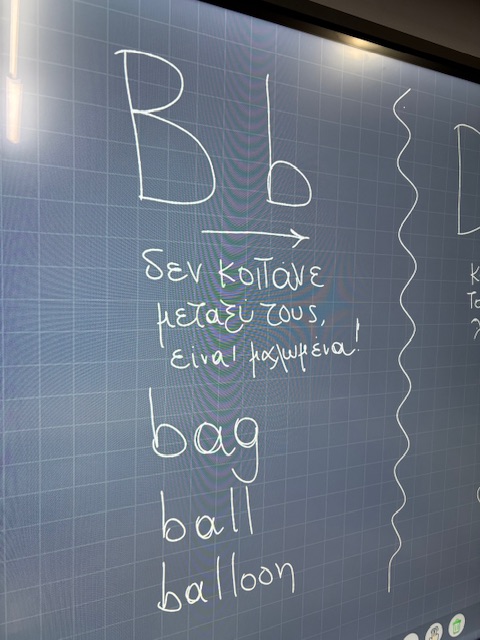 B b
δεν κοιτάνε
μεταξύ τους,
είναι μαλωμένα!
bag
ball
balloon